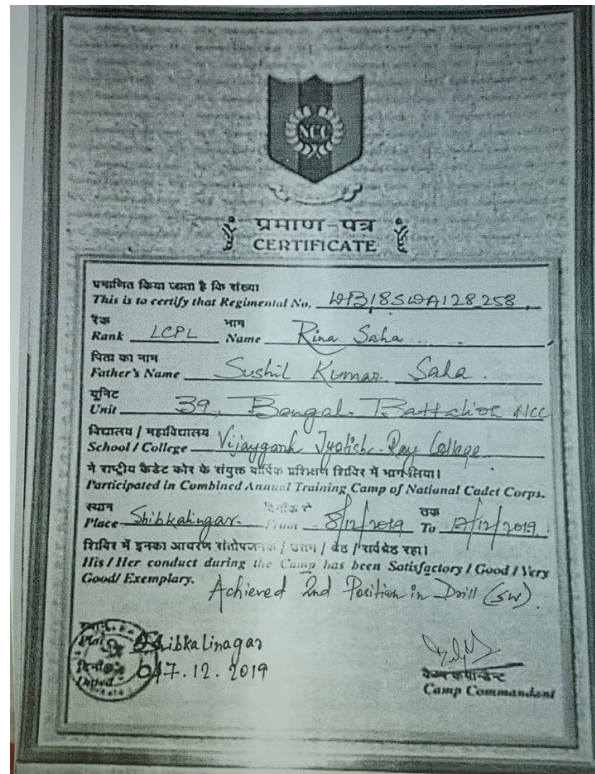 NCC
प्रमाण-पत्र
CERTIFICATE
प्रमाणित किया जाता है कि संख्या
This is to certify that Regimental No. WB18SWA128258
रैंक नाम
Rank LCPL Name Rina Saha
पिता का नाम
Father's Name Sushil Kumar Saha
यूनिट
Unit 39, Bengal Battalion NCC
विद्यालय / महाविद्यालय
School / College Vijaygarh Jyotish Ray College
ने राष्ट्रीय कैडेट कोर के संयुक्त वार्षिक प्रशिक्षण शिविर में भाग लिया।
Participated in Combined Annual Training Camp of National Cadet Corps.
स्थान दिनाँक से तक
Place Shibkalinagar From 8/12/2019 To 17/12/2019
शिविर में इनका आचरण संतोषजनक / उत्तम / श्रेष्ठ / सर्वश्रेष्ठ रहा।
His / Her conduct during the Camp has been Satisfactory / Good / Very
Good / Exemplary. Achieved 2nd Position in Drill (SW).
स्थान
Shibkalinagar
दिनाँक 17.12.2019
Dated
कैम्प कमान्डेन्ट
Camp Commandant